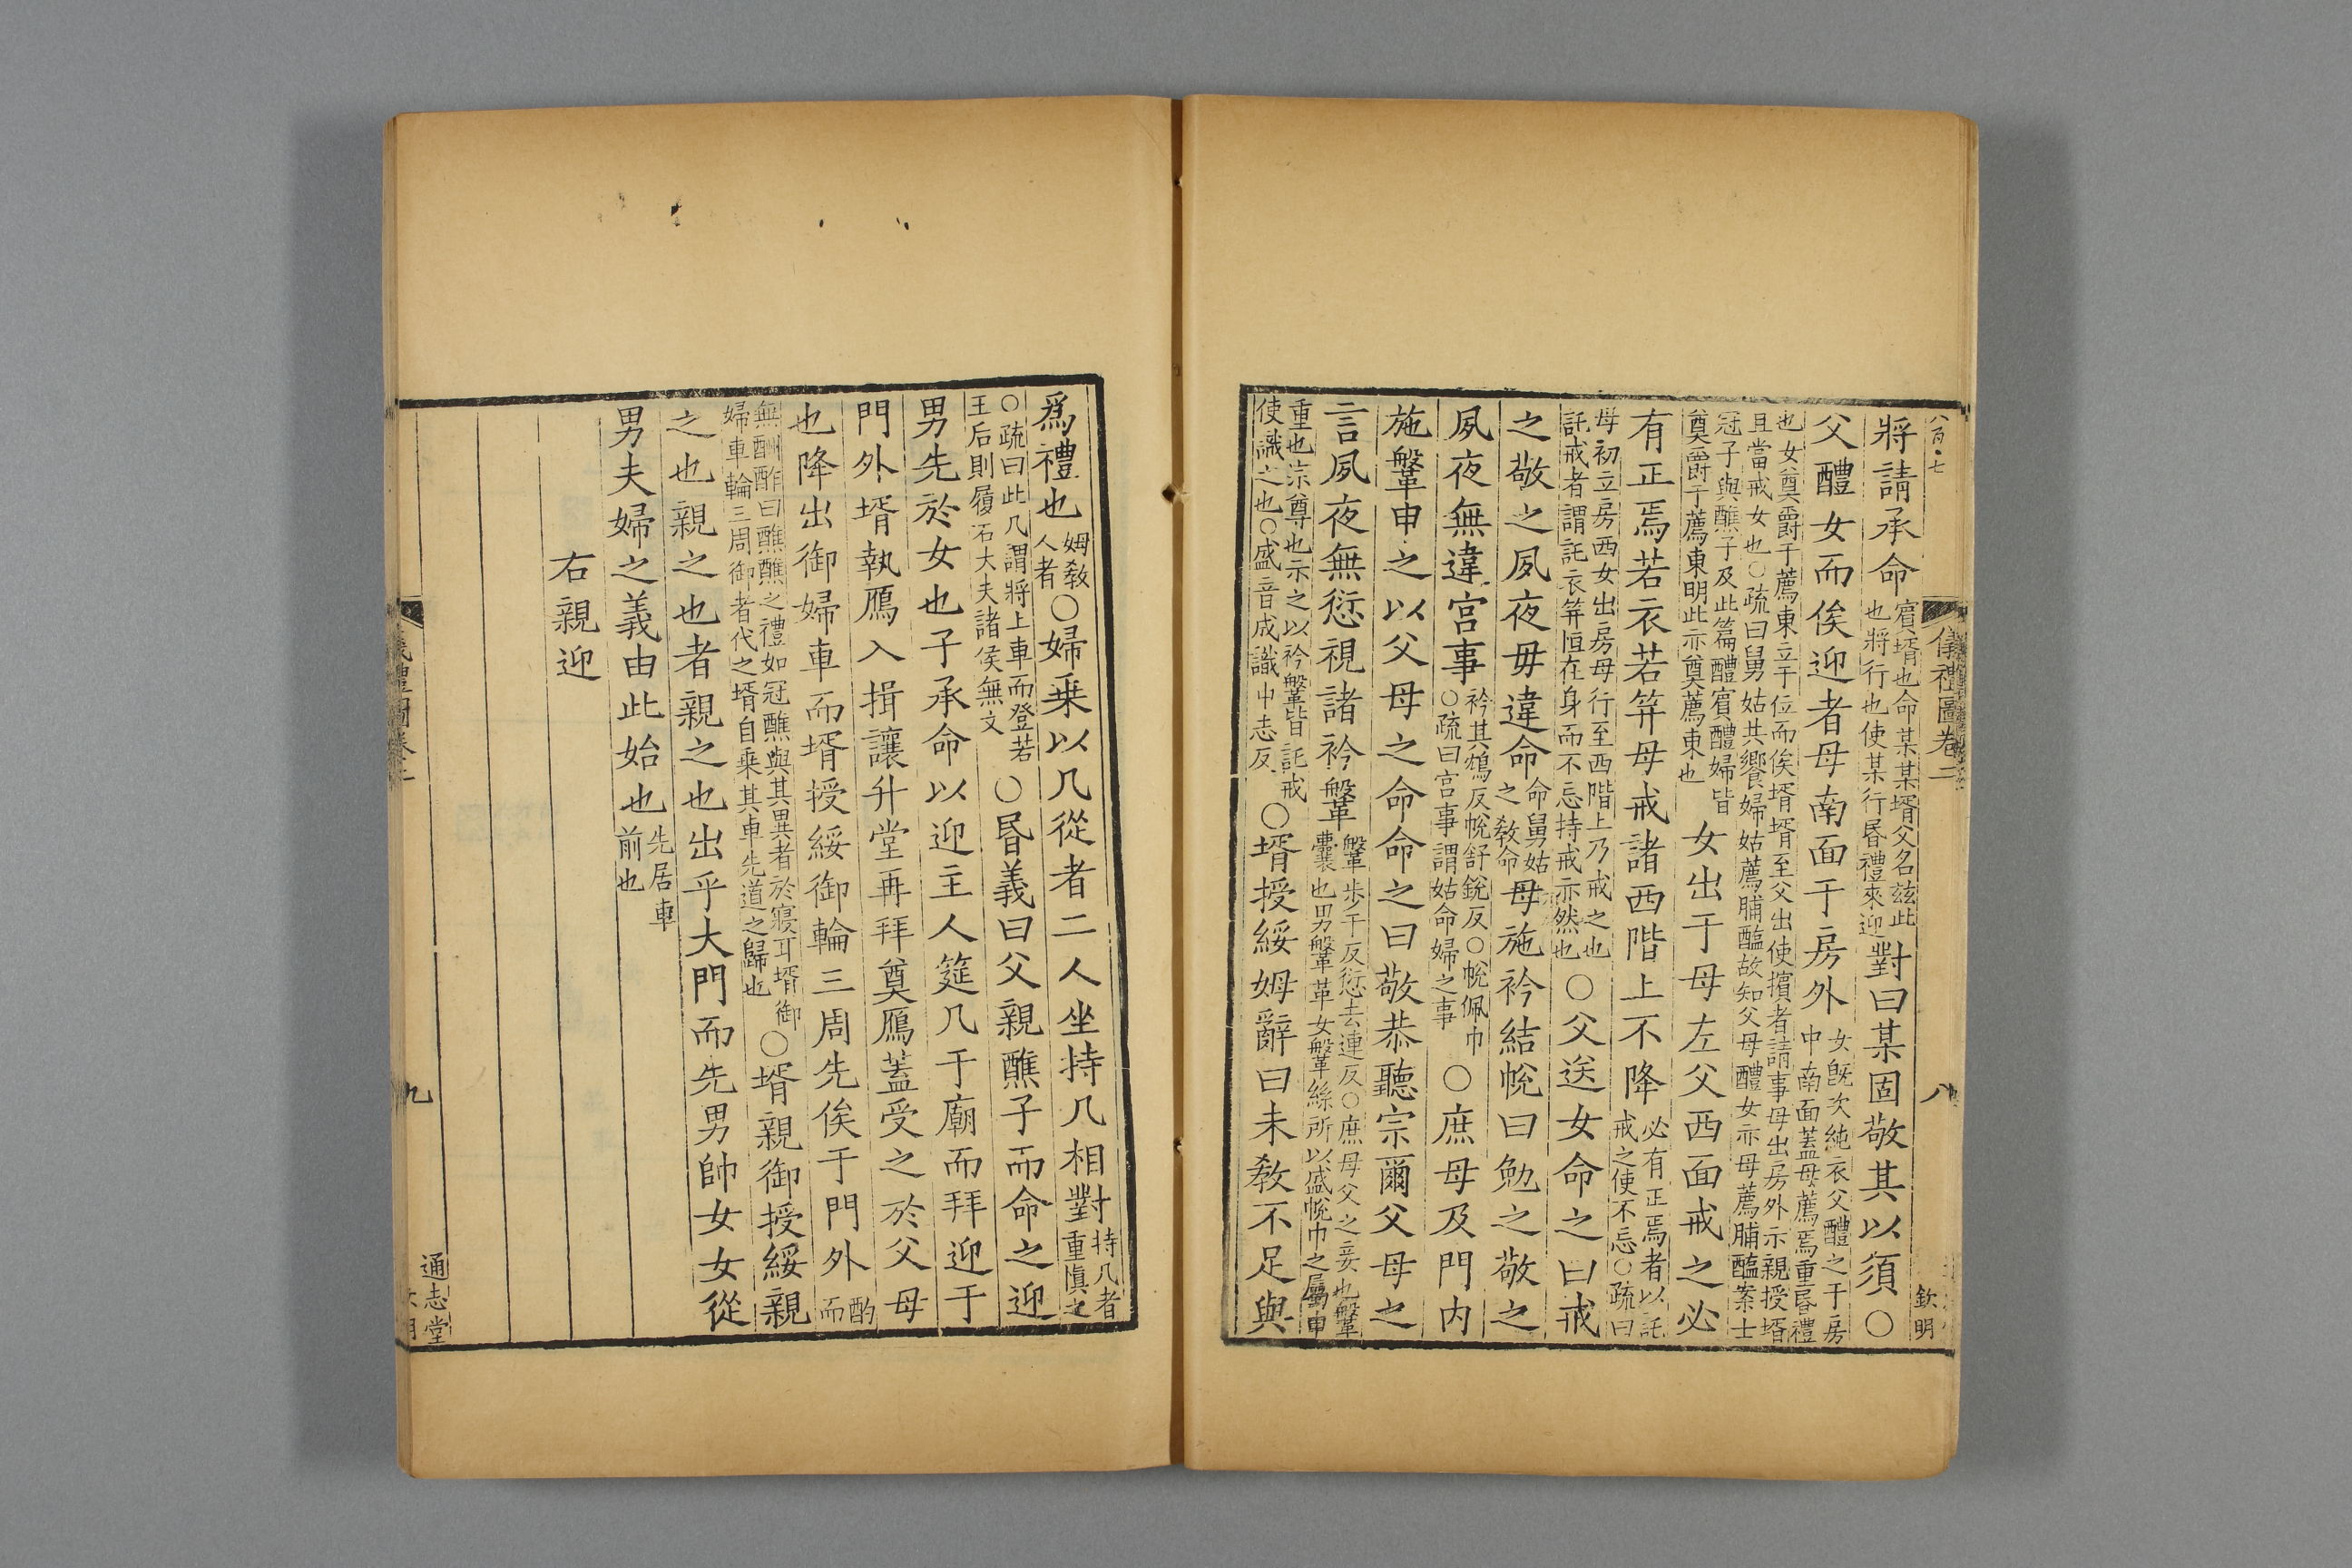 八百·七
儀禮圖卷二
八
欽明
將請承命賓壻也命某某壻父名茲此也將行也使某行昏禮來迎對曰某固敬其以須○
父醴女而俟迎者母南面于房外女旣次純衣父醴之于房中南面蓋母薦焉重昏禮
也女奠爵于薦東立于位而俟壻壻至父出使擯者請事母出房外示親授壻且當戒女也○疏曰舅姑共饗婦姑薦脯醢故知父母醴女亦母薦脯醢案士
冠子與醮子及此篇醴賓醴婦皆奠爵于薦東明此亦奠薦東也女出于母左父西面戒之必
有正焉若衣若筓母戒諸西階上不降必有正焉者以託戒之使不忘○疏曰
母初立房西女出房母行至西階上乃戒之也託戒者謂託衣筓恒在身而不忘持戒亦然也○父送女命之曰戒
之敬之夙夜毋違命命舅姑之敎命母施衿結帨曰勉之敬之
夙夜無違宮事衿其鴆反帨舒銳反○帨佩巾○疏曰宮事謂姑命婦之事○庶母及門內
施鞶申之以父母之命命之曰敬恭聽宗爾父母之
言夙夜無愆視諸衿鞶鞶步干反愆去連反○庶母父之妾也鞶囊也男鞶革女鞶絲所以盛帨巾之屬申
重也宗尊也示之以衿鞶皆託戒使識之也○盛音成識申志反○壻授綏姆辭曰未敎不足與
爲禮也姆敎人者○婦乘以几從者二人坐持几相對持几者重愼之
○疏曰此几謂將上車而登若王后則履石大夫諸侯無文○昏義曰父親醮子而命之迎
男先於女也子承命以迎主人筵几于廟而拜迎于
門外壻執鴈入揖讓升堂再拜奠鴈蓋受之於父母
也降出御婦車而壻授綏御輪三周先俟于門外酌而
無酬酢曰醮醮之禮如冠醮與其異者於寢耳壻御婦車輪三周御者代之壻自乘其車先道之歸也○壻親御授綏親
之也親之也者親之也出乎大門而先男帥女女從
男夫婦之義由此始也先居車前也
右親迎
九
通志堂